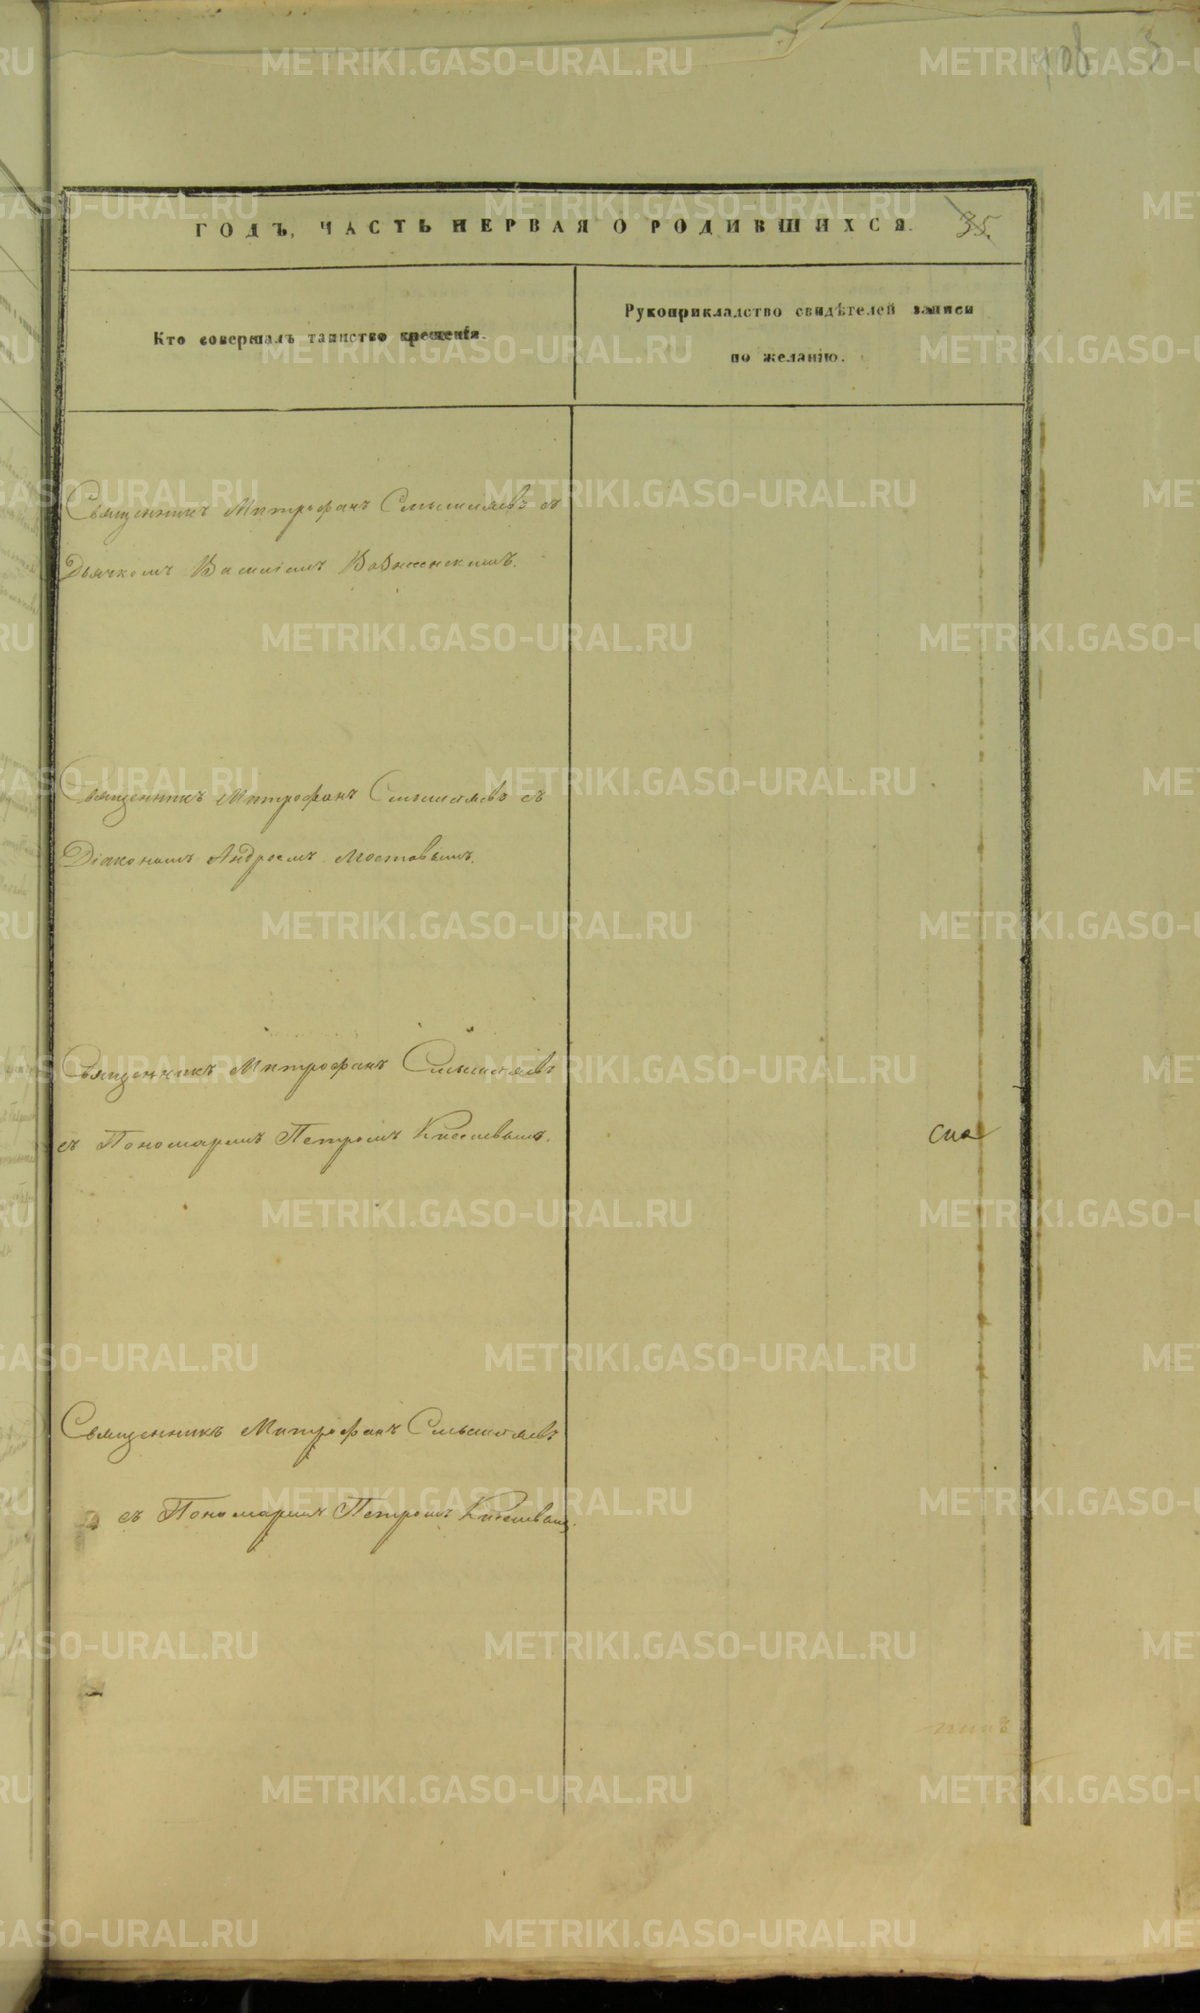 35.
ГОДЪ, ЧАСТЬ ПЕРВАЯ О РОДИВШИХСЯ.
Кто совершалъ таинство крещенія.
Рукоприкладство свидѣтелей записи
по желанію.
Священникъ Митрофанъ Смышляевъ съ
Дьячкомъ Василіемъ Вознесенскимъ.
Священникъ Митрофанъ Смышляевъ съ
Діакономъ Андреемъ Мостовымъ.
Священникъ Митрофанъ Смышляевъ
съ Пономаремъ Петромъ Киселевымъ.
Спа
Священникъ Митрофанъ Смышляевъ
съ Пономаремъ Петромъ Киселевымъ.
METRIKI.GASO-URAL.RU